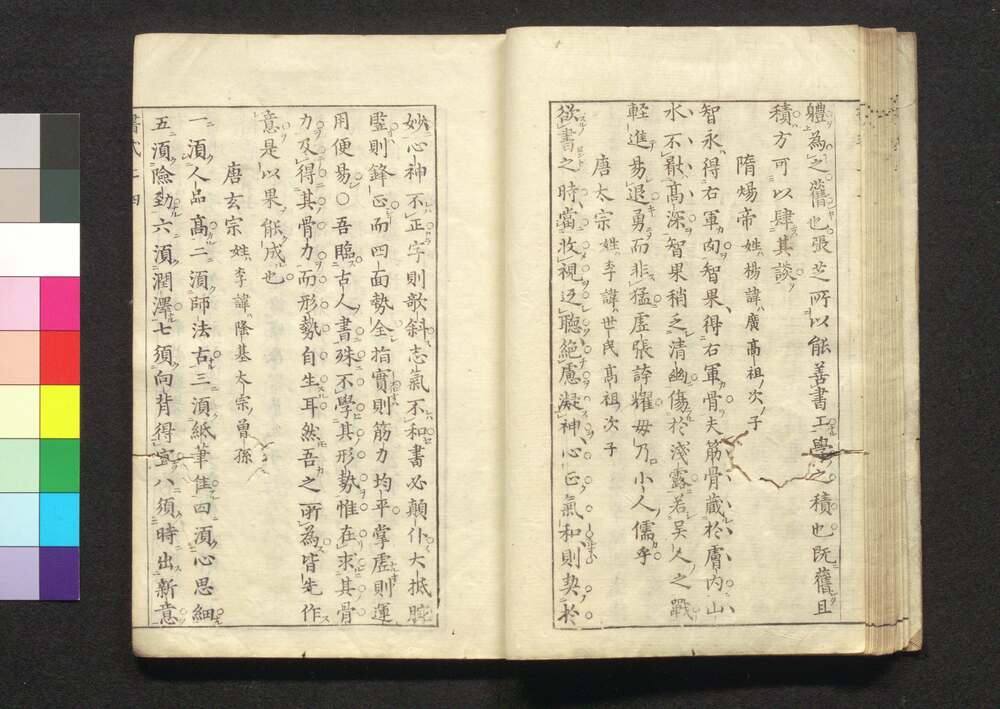 軆為之舊也張芝所以能善書工學之積也既舊且
積方可以肆其談
隋煬帝 姓楊諱廣高祖次子
智永得右軍肉智果得右軍骨夫筋骨藏於膚内山
水不猒髙深智果稍乏清幽傷於淺露若吴人之戰
軽進易退勇而非猛虚張誇耀毋乃小人儒乎
唐太宗 姓李諱世民高祖次子
欲書之時當收視返聽絶慮凝神心正氣和則契於
妙心神不正字則欹斜志氣不和書必顛仆大抵腕
竪則鋒正而四面勢全指實則筋力均平掌虚則運
用便易○吾臨古人書殊不學其形勢惟在求其骨
力及得其骨力而形勢自生耳然吾之所為皆先作
意是以果能成也
唐玄宗 姓李諱隆基太宗曽孫
一湏人品髙二湏師法古三湏紙筆佳四湏心思細
五湏險勁六湏潤澤七須向背得宜八須時出新意